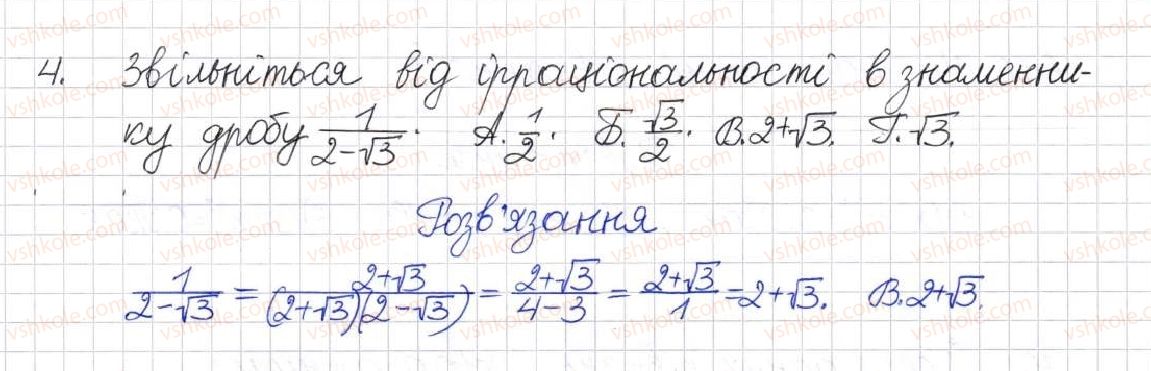 4. Звільніться від ірраціональності в знаменни-
ку дробу \frac{1}{2-√3}. А. \frac{1}{2}. Б. \frac{√3}{2}. В. 2+√3. Г. √3.
Розв'язання
\frac{1}{2-√3} = \frac{2+√3}{(2+√3)(2-√3)} = \frac{2+√3}{4-3} = \frac{2+√3}{1} = 2+√3. В. 2+√3.